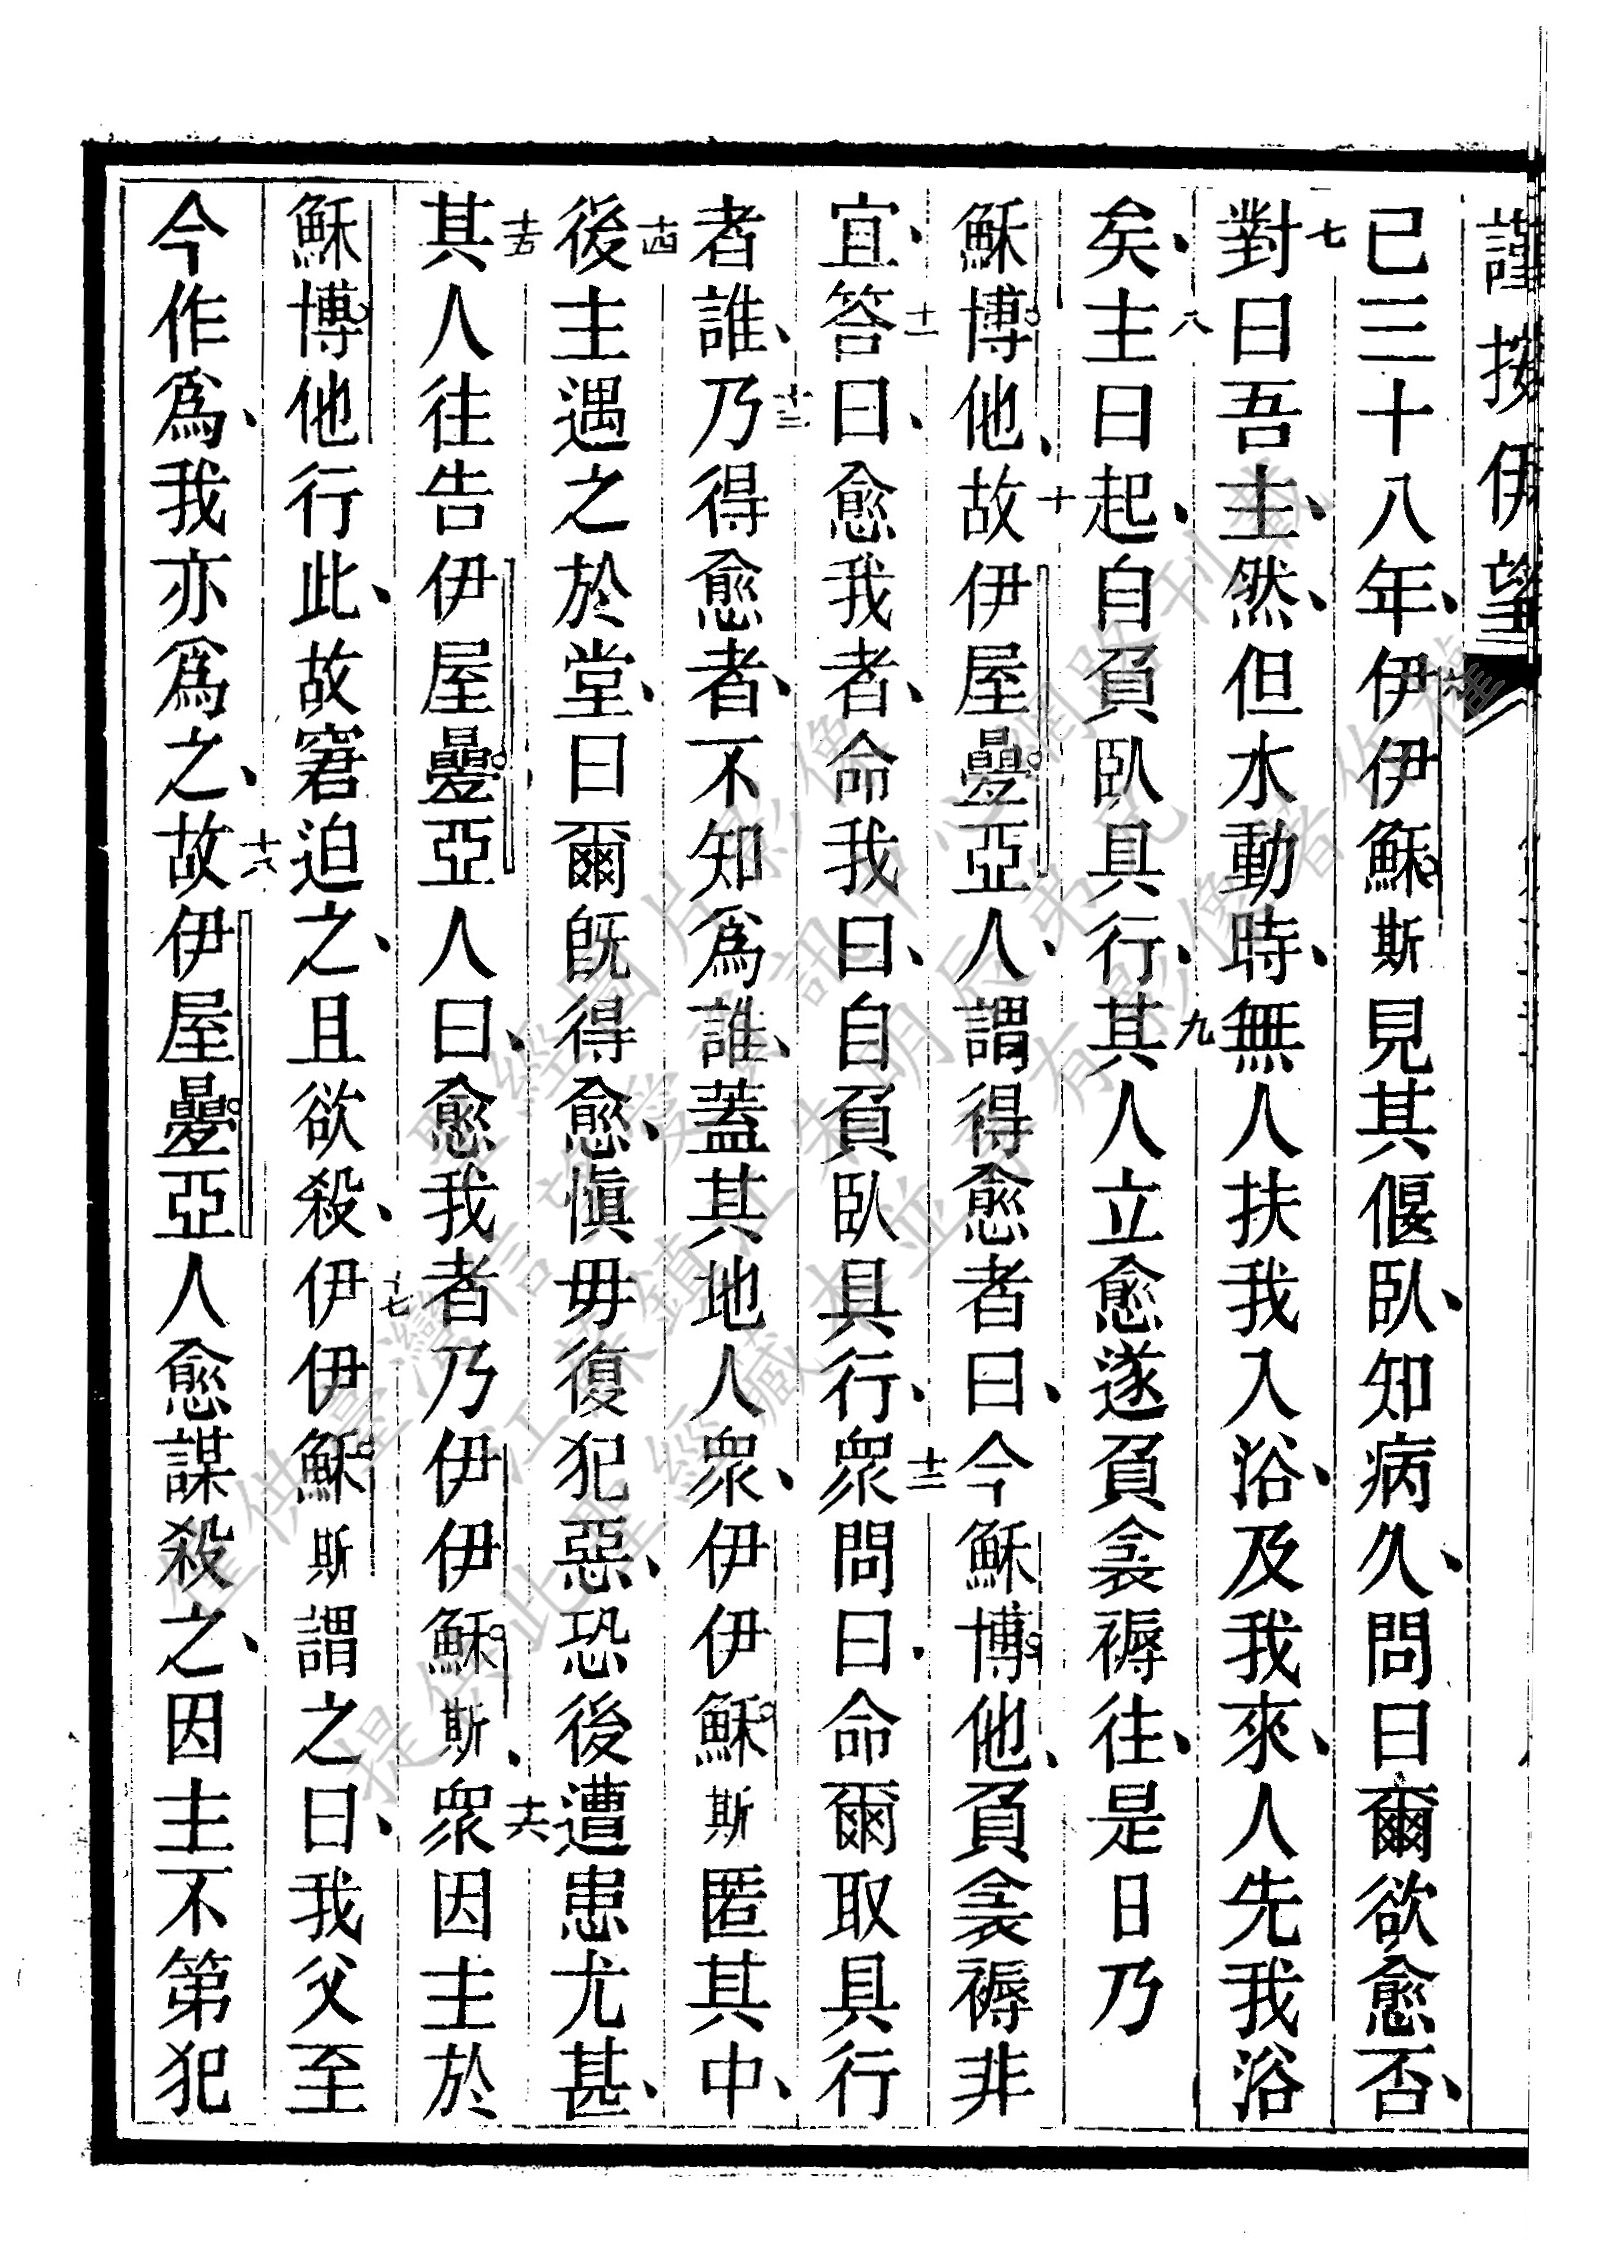 謹按伊望
已三十八年、六伊伊穌斯見其偃臥、知病久、問曰爾欲愈否、
七對曰吾主、然、但水動時、無人扶我入浴、及我來、人先我浴
矣、八主曰起、自負臥具行、九其人立愈遂負衾褥往、是日乃
穌博他、十故伊屋曡亞人、謂得愈者曰、今穌博他、負衾褥非
宜、十一答曰、愈我者、命我曰、自負臥具行、十二衆問曰、命爾取具行
者誰、十三乃得愈者、不知爲誰、蓋其地人衆、伊伊穌斯匿其中、
十四後主遇之於堂、曰爾旣得愈、愼毋復犯惡、恐後遭患尤甚、
十五其人往告伊屋曡亞人曰、愈我者乃伊伊穌斯、十六衆因主於
穌博他行此、故窘迫之、且欲殺、十七伊伊穌斯謂之曰、我父至
今作爲、我亦爲之、十八故伊屋曡亞人愈謀殺之、因主不第犯
聖經圖片影像
僅供臺灣信望愛資訊中心網路刊載
江蘇鎮江朱明辰弟兄
提供此聖經藏本並享有影像著作權